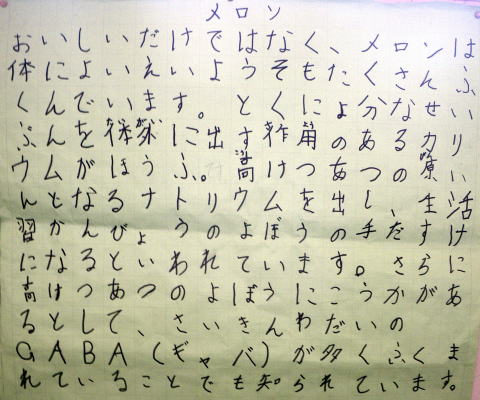 メロン
おいしいだけではなく、メロンは
体によいえいようそもたくさんふ
くんでいます。とくによ分なせい
ぶんを体外に出す作用のあるカリ
ウムがほうふ。高けつあつの原い
んとなるナトリウムを出し、生活
習かんびょうのよぼうの手だすけ
になるといわれています。さらに
高けつあつのよぼうにこうかがあ
るとして、さいきんわだいの
GABA(ギャバ)が多くふくま
れていることでも知られています。